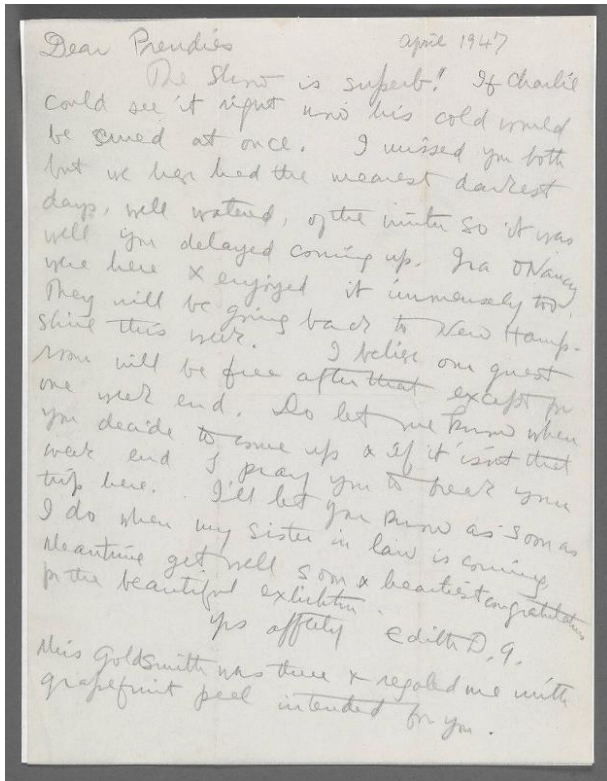 Dear Prendies April 1947
The Show is superb!! If Charlie
could see it right now his cold would
be cured at once. I missed you both
but we have had the meanest darkest
days, well watered, of the winter so it was
well you delayed coming up. Ira & Nancy
were here & enjoyed it immensely too.
They will be going back to New Hamp-
shire this week. I believe our guest
room will be free after that except for
one week end. Do let me know when
you decide to come up & if it isn't that
week end I pray you to your
trip here. I'll let you know as soon as
I do when my sister in law is coming.
Meantime get well soon & heartiest congratulations
for the beautiful exhibition.
Yrs afftly Edith D. G.
Miss Goldsmith was there & regaled me with
grapefruit peel intended for you.